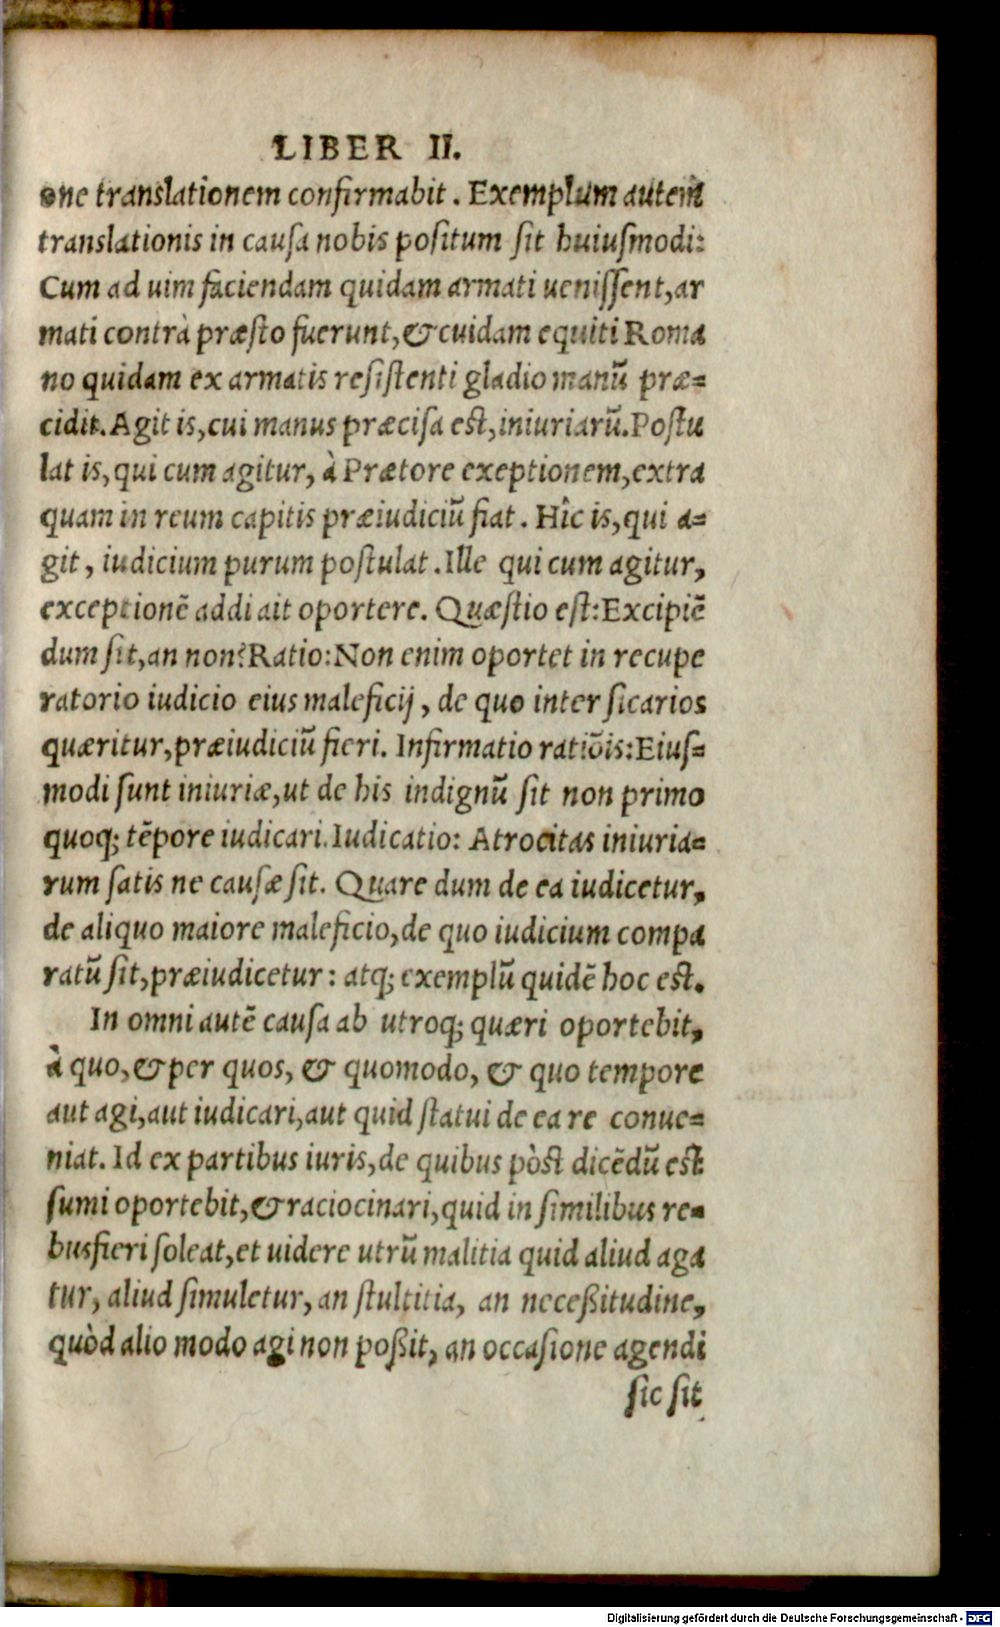 LIBER II.
one translationem confirmabit. Exemplum autem
translationis in causa nobis positum sit huiusmodi:
Cum ad uim faciendam quidam armati uenissent, ar
mati contrà præsto fuerunt, & cuidam equiti Roma
no quidam ex armatis resistenti gladio manū præ=
cidit. Agit is, cui manus præcisa est, iniuriarū. Postu
lat is, qui cum agitur, à Prætore exeptionem, extra
quam in reum capitis præiudiciū fiat. Hîc is, qui a=
git, iudicium purum postulat. Ille qui cum agitur,
exceptionē addi ait oportere. Quæstio est: Excipiē
dum sit, an non? Ratio: Non enim oportet in recupe
ratorio iudicio eius maleficij, de quo inter sicarios
quæritur, præiudiciū fieri. Infirmatio ratiōis: Eius=
modi sunt iniuriæ, ut de his indignū sit non primo
quoq; tēpore iudicari. Iudicatio: Atrocitas iniuria=
rum satis ne causæ sit. Quare dum de ea iudicetur,
de aliquo maiore maleficio, de quo iudicium compa
ratū sit, præiudicetur: atq; exemplū quidē hoc est.
In omni autē causa ab utroq; quæri oportebit,
à quo, & per quos, & quomodo, & quo tempore
aut agi, aut iudicari, aut quid statui de ea re conue=
niat. Id ex partibus iuris, de quibus pòst dicēdū est
sumi oportebit, & raciocinari, quid in similibus re=
bus fieri soleat, et uidere utrū malitia quid aliud aga
tur, aliud simuletur, an stultitia, an neceßitudine,
quòd alio modo agi non poßit, an occasione agendi
sic sit
Digitalisierung gefördert durch die Deutsche Forschungsgemeinschaft - DFG